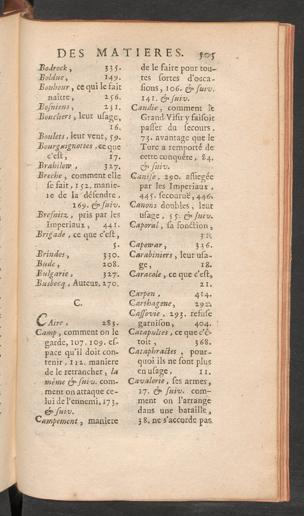 DES MATIERES. 505
Bodrock, 335.
Bolduc, 149.
Bonhour, ce qui le fait
naître, 256.
Bosniens, 231.
Boucliers, leur usage,
16.
Boulets, leur vent, 59.
Bourguignottes, ce que
c'est, 17.
Brahilow, 327.
Breche, comment elle
se fait, 152. manie-
re de la défendre,
169. & suiv.
Bresnitz, pris par les
Imperiaux, 441.
Brigade, ce que c'est,
5.
Brindes, 330.
Bude, 208.
Bulgarie, 327.
Busbecq, Auteur, 270.
C.
Caire, 283.
Camp, comment on le
garde, 107. 109. es-
pace qu'il doit con-
tenir, 112. maniere
de le retrancher, la
même & suiv. com-
ment on attaque ce-
lui de l'ennemi, 173.
& suiv.
Campement, maniere
de le faire pour tou-
tes sortes d'occa-
sions, 106. & suiv.
141. & suiv.
Candie, comment le
Grand Visir y faisoit
passer du secours,
73. avantage que le
Turc a remporté de
cette conquête, 84.
& suiv.
Canise, 290. assiegée
par les Imperiaux,
445. secouruë, 446.
Canons doubles, leur
usage, 55. & suiv.
Caporal, sa fonction,
Capowar, 326.
Carabiniers, leur usa-
ge, 18.
Caracole, ce que c'est,
21.
Carpen, 454.
Carthagene, 292.
Cassovie, 293. refuse
garnison, 404.
Catapultes, ce que c'é-
toit, 368.
Cataphractes, pour-
quoi ils ne sont plus
en usage, 11.
Cavalerie, ses armes,
17. & suiv. com-
ment on l'arrange
dans une bataille,
38. ne s'accorde pas